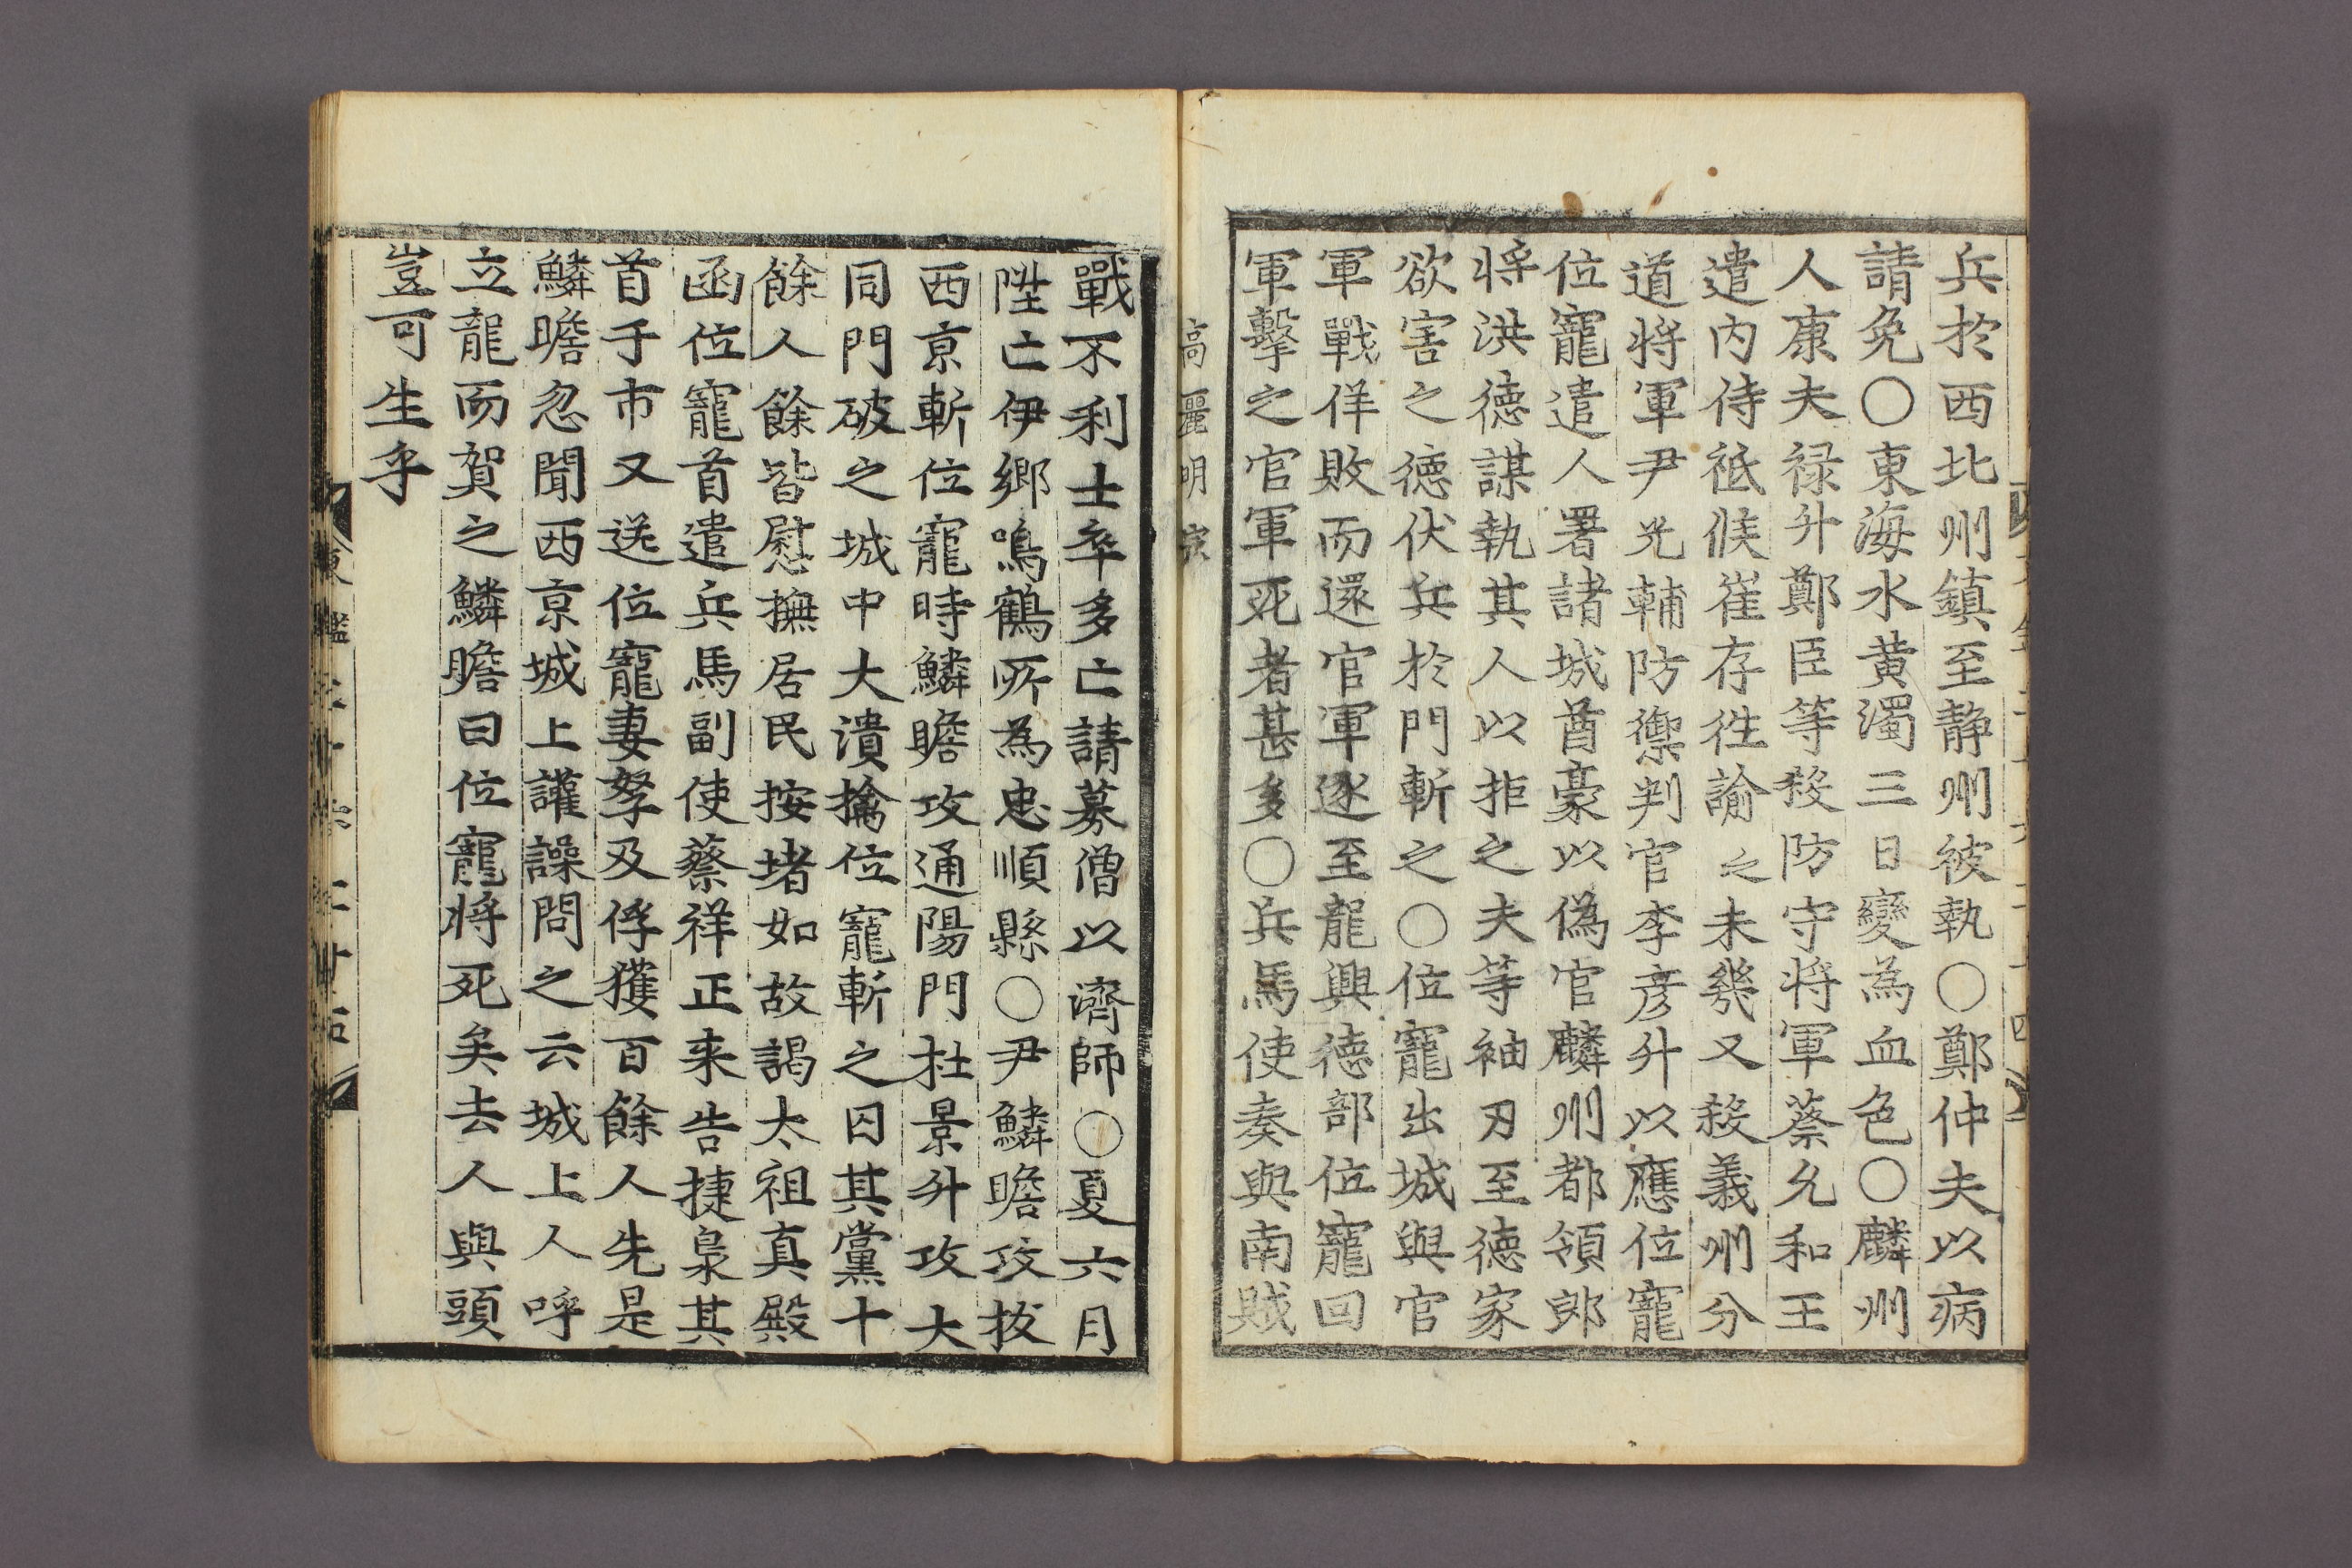 兵於西北州鎮至静州被執○鄭仲夫以病
請免○東海水黄濁三日變為血色○麟州
人康夫禄升鄭臣等殺防守将軍蔡允和王
遣内侍祗候崔存徃諭之未幾又殺義州分
道将軍尹光輔防禦判官李彦升以應位寵
位寵遣人署諸城酋豪以偽官麟州都領郎
将洪徳謀執其人以拒之夫等袖刃至徳家
欲害之徳伏兵於門斬之○位寵出城與官
軍戰佯敗而還官軍逐至龍興徳部位寵回
軍擊之官軍死者甚多○兵馬使奏與南賊
高麗明宗
戰不利士卒多亡請募僧以濟師○夏六月
陞亡伊郷鳴鶴所為忠順縣○尹鱗瞻攻拔
西京斬位寵時鱗瞻攻通陽門杜景升攻大
同門破之城中大潰擒位寵斬之囚其黨十
餘人餘皆慰撫居民按堵如故謁太祖真殿
函位寵首遣兵馬副使蔡祥正来告捷梟其
首于市又送位寵妻孥及俘獲百餘人先是
鱗瞻忽聞西京城上讙譟問之云城上人呼
立龍而賀之鱗瞻曰位寵将死矣去人與頭
豈可生乎